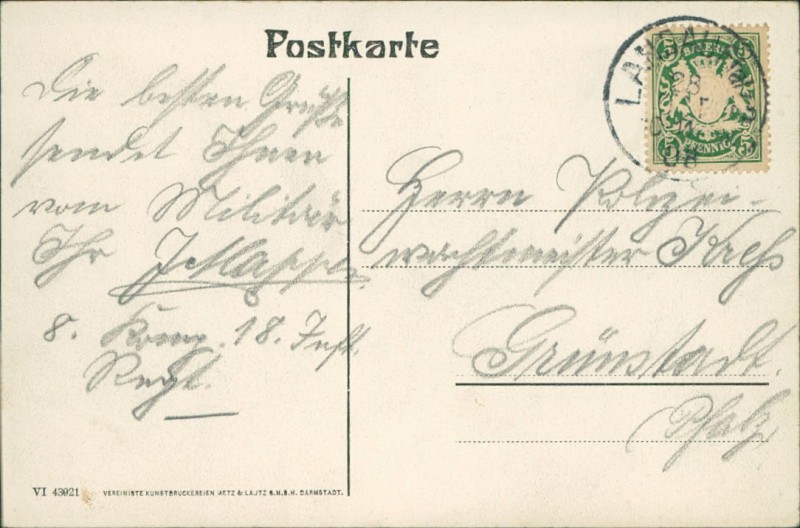 Postkarte
Die besten Grüße
sendet Ihnen
vom Militär
Ihr
8. Komp. 18. Inft.
Regt.
Herrn Polizei-
wachtmeister Kreß
Grünstadt.
Pfalz
LANDAU
BAYERN
5 5
PFENNIG
5 5
VI 43921 VEREINIGTE KUNSTDRUCKEREIEN METZ & LAUTZ G.M.B.H. DARMSTADT.